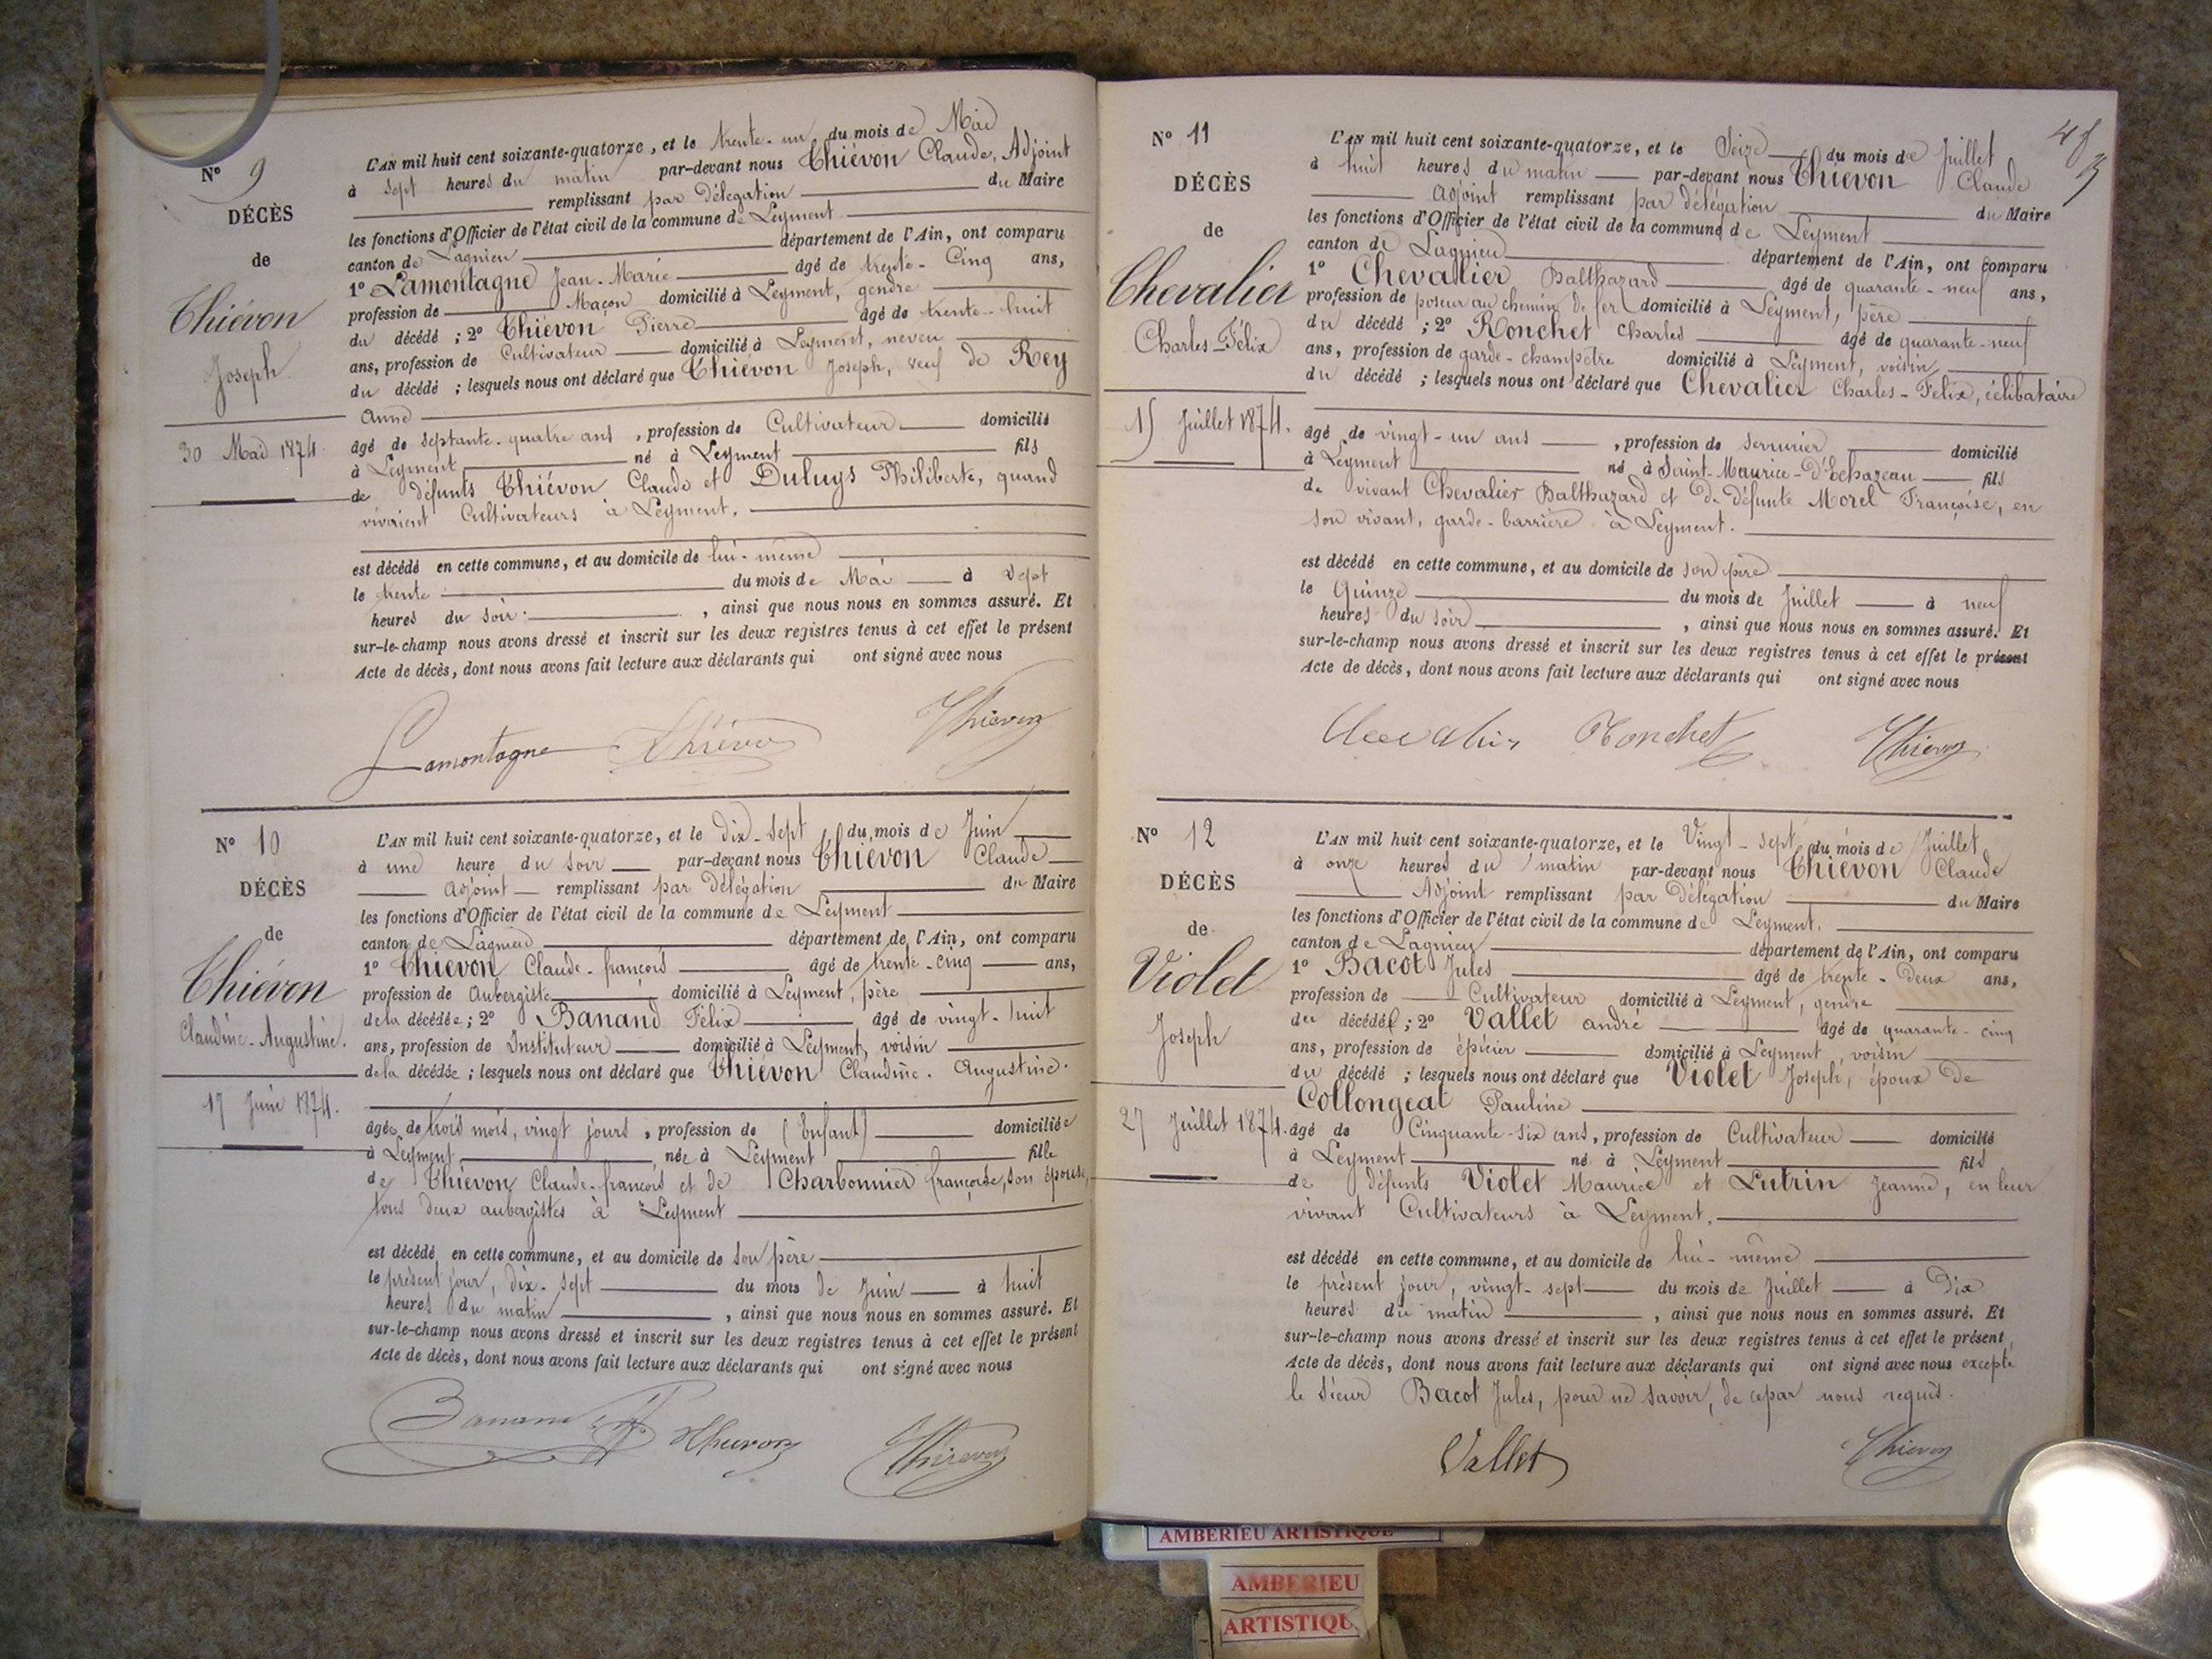 N° 9
DÉCÈS
de
Thiévon
Joseph
30 Mai 1874.
L'AN mil huit cent soixante-quatorze, et le trente-un du mois de Mai
à sept heures du matin par-devant nous Thiévon Claude, Adjoint
remplissant par délégation du Maire
les fonctions d'Officier de l'état civil de la commune de Leyment
canton de Lagnieu département de l'Ain, ont comparu
1° Lamontagne Jean-Marie âgé de trente-cinq ans,
profession de Maçon domicilié à Leyment, gendre
du décédé ; 2° Thiévon Pierre âgé de trente-huit
ans, profession de Cultivateur domicilié à Leyment, neveu
du décédé ; lesquels nous ont déclaré que Thiévon Joseph, veuf de Rey
Anne
âgé de septante-quatre ans, profession de Cultivateur domicilié
à Leyment né à Leyment fils
de défunts Thiévon Claude et Duluys Philiberte, quand
vivaient Cultivateurs à Leyment.
est décédé en cette commune, et au domicile de lui-même
le trente du mois de Mai à sept
heures du soir, ainsi que nous nous en sommes assuré. Et
sur-le-champ nous avons dressé et inscrit sur les deux registres tenus à cet effet le présent
Acte de décès, dont nous avons fait lecture aux déclarants qui ont signé avec nous
Lamontagne Thiévon Thiévon
N° 10
DÉCÈS
de
Thiévon
Claudine-Augustine.
17 Juin 1874.
L'AN mil huit cent soixante-quatorze, et le dix-sept du mois de Juin
à une heure du soir par-devant nous Thiévon Claude
Adjoint remplissant par délégation du Maire
les fonctions d'Officier de l'état civil de la commune de Leyment
canton de Lagnieu département de l'Ain, ont comparu
1° Thiévon Claude-françois âgé de trente-cinq ans,
profession de Aubergiste domicilié à Leyment, père
de la décédée ; 2° Banand Félix âgé de vingt-huit
ans, profession de Instituteur domicilié à Leyment, voisin
de la décédée ; lesquels nous ont déclaré que Thiévon Claudine-Augustine.
âgée de trois mois, vingt jours, profession de (Enfant) domiciliée
à Leyment née à Leyment fille
de Thiévon Claude-françois et de Charbonnier françoise, son épouse,
tous deux aubergistes à Leyment
est décédé en cette commune, et au domicile de son père
le présent jour, dix-sept du mois de Juin à huit
heures du matin, ainsi que nous nous en sommes assuré. Et
sur-le-champ nous avons dressé et inscrit sur les deux registres tenus à cet effet le présent
Acte de décès, dont nous avons fait lecture aux déclarants qui ont signé avec nous
Banand Thiévon Thiévon
N° 11
DÉCÈS
de
Chevalier
Charles-Félix
15 Juillet 1874.
L'AN mil huit cent soixante-quatorze, et le Seize du mois de Juillet
à huit heures du matin par-devant nous Thiévon Claude
Adjoint remplissant par délégation du Maire
les fonctions d'Officier de l'état civil de la commune de Leyment
canton de Lagnieu département de l'Ain, ont comparu
1° Chevallier Balthazard âgé de quarante-neuf ans,
profession de poseur au chemin de fer domicilié à Leyment, père
du décédé ; 2° Ronchet Charles âgé de quarante-neuf
ans, profession de garde-champêtre domicilié à Leyment, voisin
du décédé ; lesquels nous ont déclaré que Chevalier Charles-Félix, célibataire
âgé de vingt-un ans, profession de serrurier domicilié
à Leyment né à Saint-Maurice-d'Echazeau fils
de vivant Chevalier Balthazard et de défunte Morel Françoise, en
son vivant, garde-barrière à Leyment.
est décédé en cette commune, et au domicile de son père
le Quinze du mois de Juillet à neuf
heures du soir, ainsi que nous nous en sommes assuré. Et
sur-le-champ nous avons dressé et inscrit sur les deux registres tenus à cet effet le présent
Acte de décès, dont nous avons fait lecture aux déclarants qui ont signé avec nous
Ronchet Thiévon
N° 12
DÉCÈS
de
Violet
Joseph
27 Juillet 1874.
L'AN mil huit cent soixante-quatorze, et le Vingt-sept du mois de Juillet
à onze heures du matin par-devant nous Thiévon Claude
Adjoint remplissant par délégation du Maire
les fonctions d'Officier de l'état civil de la commune de Leyment.
canton de Lagnieu département de l'Ain, ont comparu
1° Bacot Jules âgé de trente-deux ans,
profession de Cultivateur domicilié à Leyment, gendre
du décédé ; 2° Vallet andré âgé de quarante-cinq
ans, profession de épicier domicilié à Leyment, voisin
du décédé ; lesquels nous ont déclaré que Violet Joseph, époux de
Collongeat Pauline
âgé de Cinquante-six ans, profession de Cultivateur domicilié
à Leyment né à Leyment fils
de défunts Violet Maurice et Lutrin Jeanne, en leur
vivant Cultivateurs à Leyment.
est décédé en cette commune, et au domicile de lui-même
le présent jour, vingt-sept du mois de Juillet à Dix
heures du matin, ainsi que nous nous en sommes assuré. Et
sur-le-champ nous avons dressé et inscrit sur les deux registres tenus à cet effet le présent
Acte de décès, dont nous avons fait lecture aux déclarants qui ont signé avec nous excepté
le sieur Bacot Jules, pour ne savoir, de ce par nous requis.
Vallet Thiévon
AMBERIEU ARTISTIQUE
AMBERIEU
ARTISTIQU